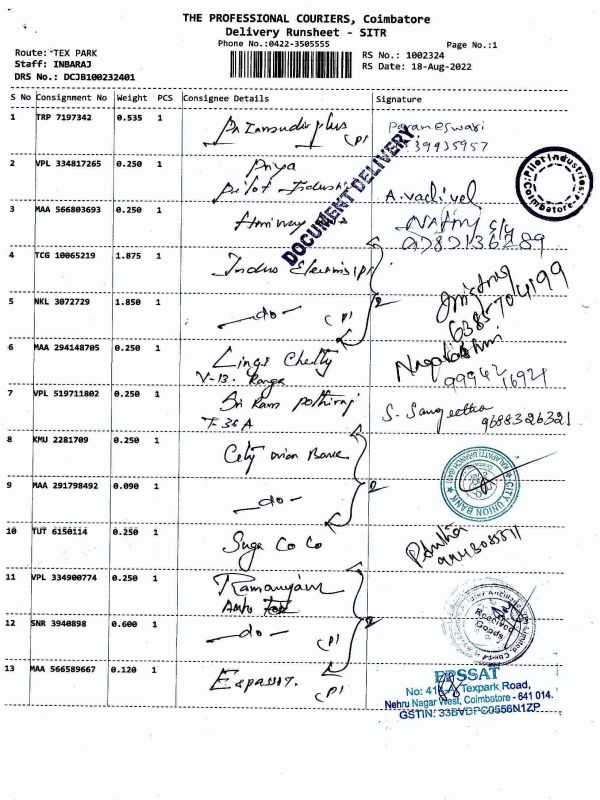 THE PROFESSIONAL COURIERS, Coimbatore
Delivery Runsheet - SITR
Phone No.:0422-3505555
Page No.:1
Route: TEX PARK
Staff: INBARAJ
DRS No.: DCJB100232401
RS No.: 1002324
RS Date: 18-Aug-2022
S No Consignment No Weight PCS Consignee Details Signature
1 TRP 7197342 0.535 1 plus (P) Parameswari
39935957
2 VPL 334817265 0.250 1 Priya
Pilot Industries A. Vadivel
Pilot Industries Coimbatore
DOCUMENT DELIVERY
3 MAA 566803693 0.250 1
9787136289
4 TCG 10065219 1.875 1 Indus (P)
6385704199
5 NKL 3072729 1.850 1 -do- (P) 2
6 MAA 294148705 0.250 1 Lings Chetty
V-13. Ranga
99942 16921
7 VPL 519711802 0.250 1 Sri Ram Pothiraj S. Sangeetha
T-36 A 9688326321
8 KMU 2281709 0.250 1 City Union Bank
CITY UNION BANK
9 MAA 291798492 0.090 1 -do- 2
10 TUT 6150114 0.250 1 Suga Co Co
11 VPL 334900774 0.250 1
Auto
Received
Goods
12 SNR 3940898 0.600 1 -do- (P) 2
13 MAA 566589667 0.120 1 (P)
EPSSAT
Texpark Road,
Nehru Nagar West, Coimbatore - 641 014.